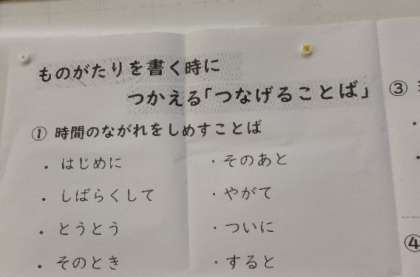 ものがたりを書く時に
つかえる「つなげることば」
① 時間のながれをしめすことば
・はじめに
・しばらくして
・とうとう
・そのとき
・そのあと
・やがて
・ついに
・すると
③
④